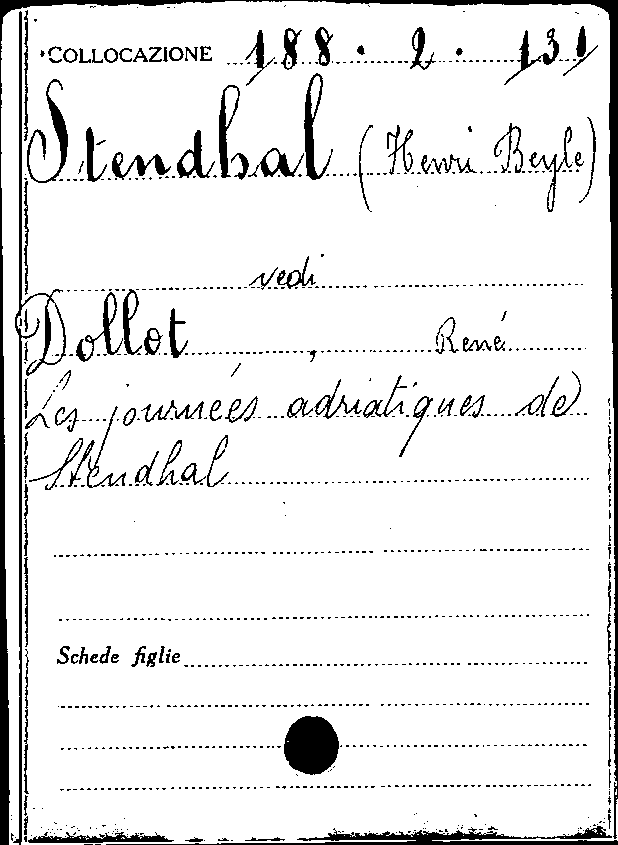 COLLOCAZIONE 188 . 2 . 131
Stendhal (Henri Beyle)
vedi
Dollot, René
Les journées adriatiques de
Stendhal
Schede figlie